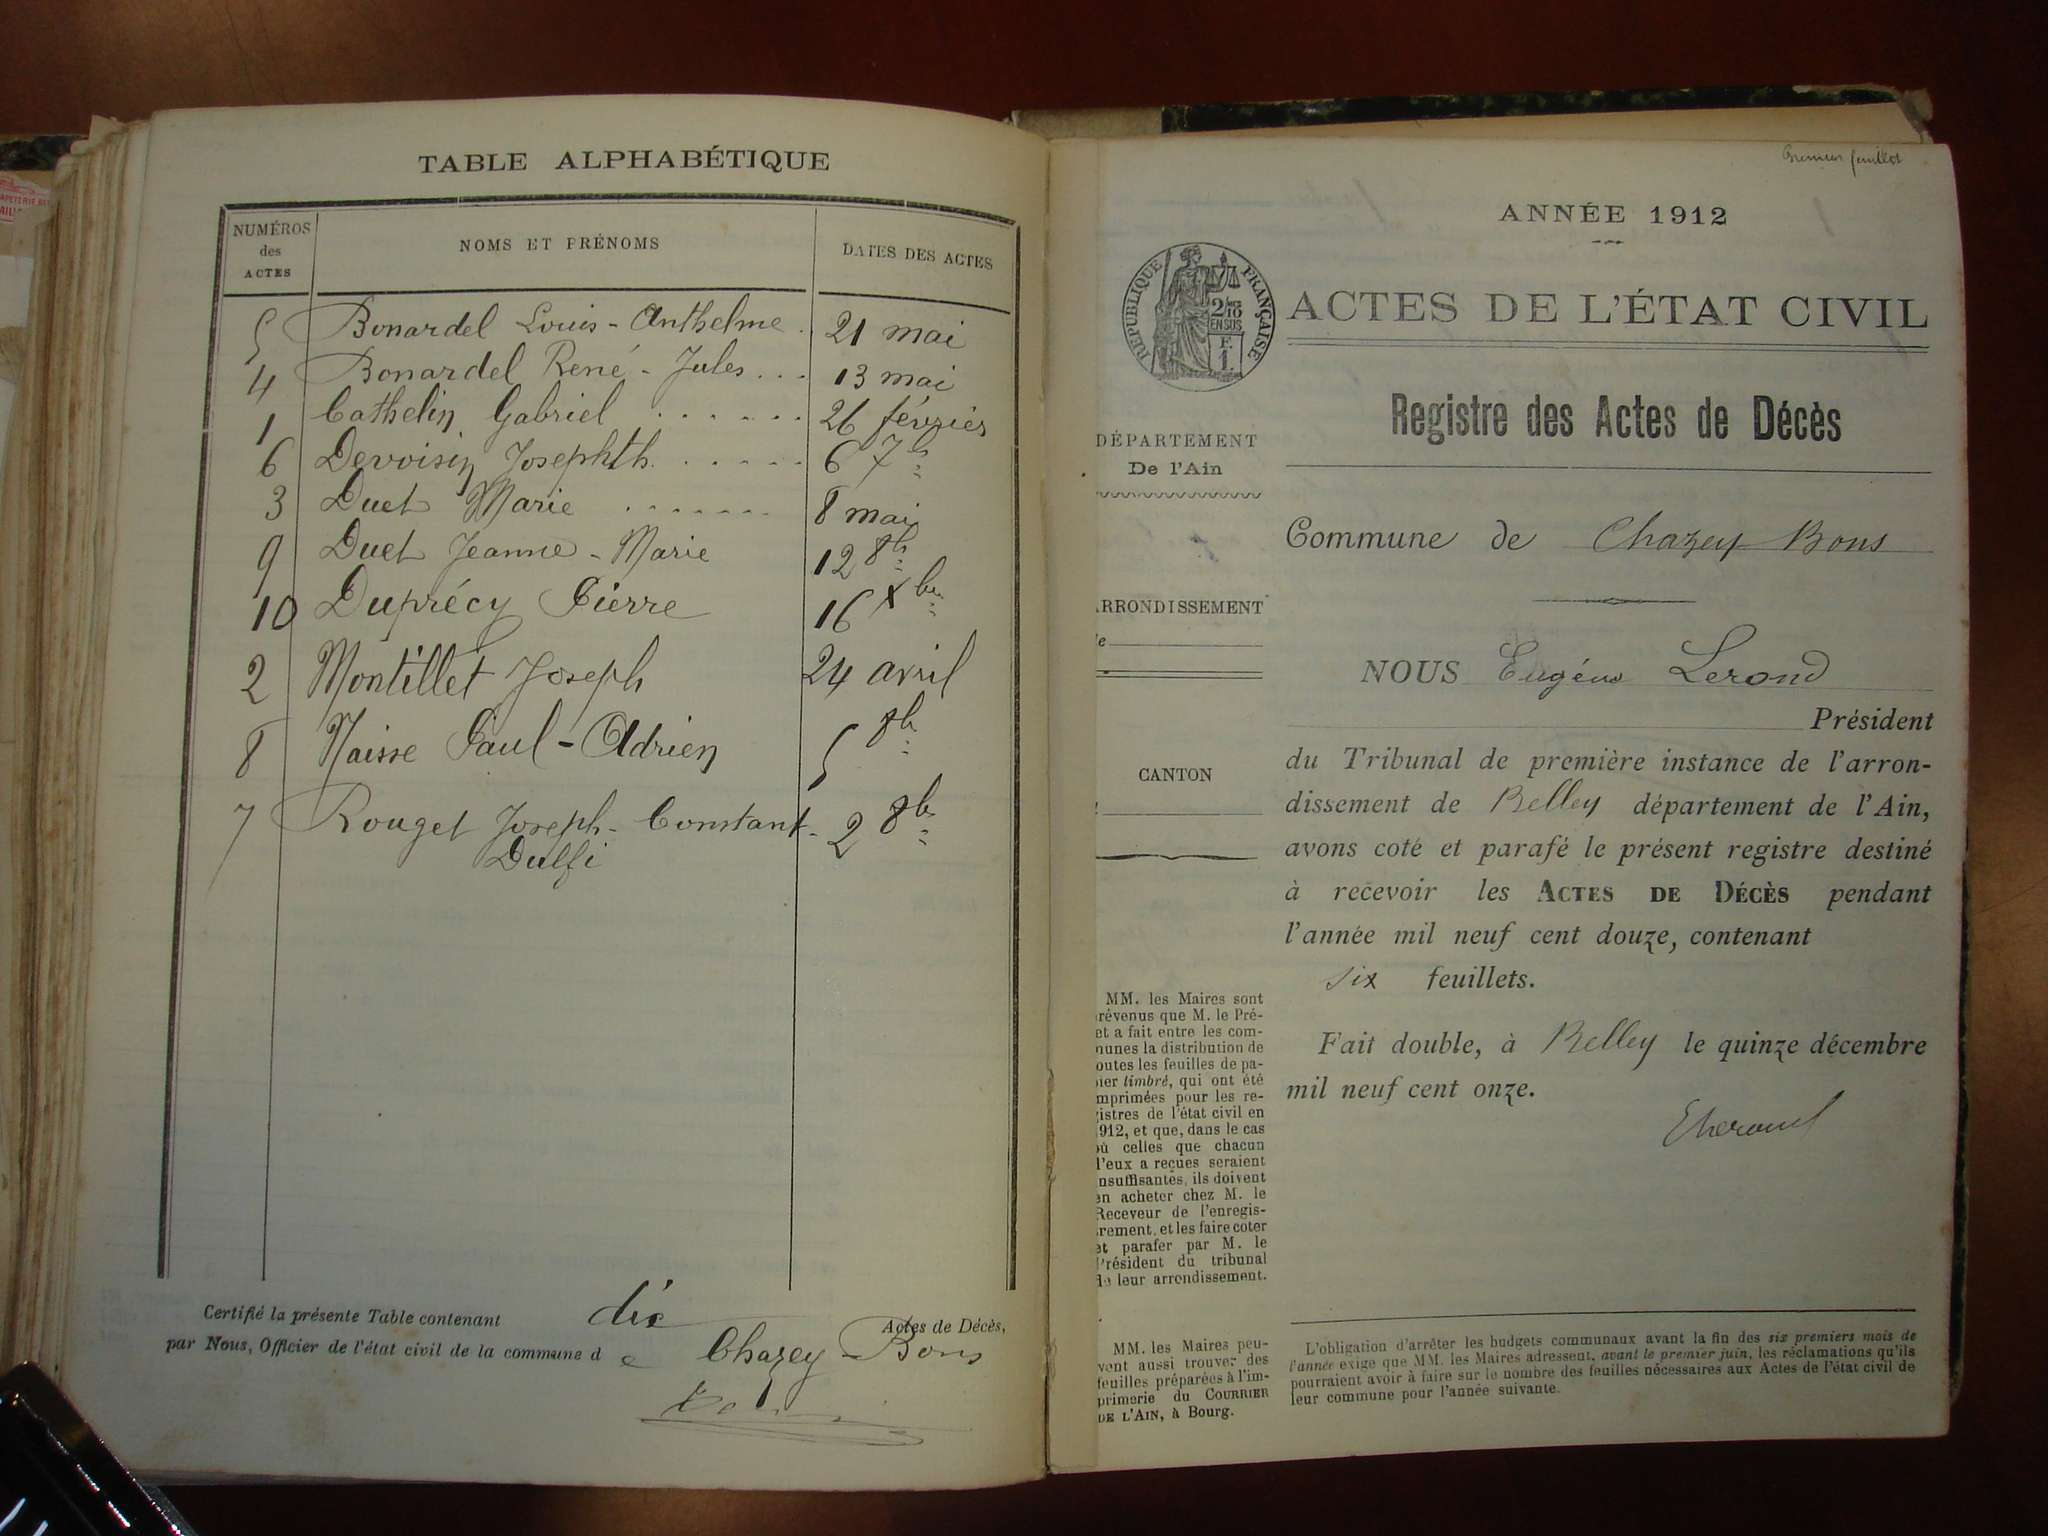 TABLE ALPHABÉTIQUE
NUMÉROS des ACTES
NOMS ET PRÉNOMS
DATES DES ACTES
5 Bonardel Louis-Anthelme. 21 mai
4 Bonardel René-Jules... 13 mai
1 Cathelin Gabriel ...... 26 février
6 Devoisin Josephth. ..... 6 7b
3 Duet Marie ....... 8 mai
9 Duet Jeanne-Marie 12 8b
10 Duprécy Pierre 16 Xbre
2 Montillet Joseph 24 avril
8 Naisse Paul-Adrien 5 8b
7 Rouget Joseph-Constant- 2 8b
Dulfi
Certifié la présente Table contenant dix Actes de Décès,
par Nous, Officier de l'état civil de la commune de Chazey-Bons
Premier feuillet
ANNÉE 1912
RÉPUBLIQUE FRANÇAISE
2/10 EN SUS
F. 1.
ACTES DE L'ÉTAT CIVIL
Registre des Actes de Décès
DÉPARTEMENT
De l'Ain
Commune de Chazey Bons
RRONDISSEMENT
NOUS Eugène Lerond
Président
du Tribunal de première instance de l'arron-
dissement de Belley département de l'Ain,
avons coté et parafé le présent registre destiné
à recevoir les ACTES DE DÉCÈS pendant
l'année mil neuf cent douze, contenant
six feuillets.
Fait double, à Belley le quinze décembre
mil neuf cent onze.
CANTON
MM. les Maires sont
révenus que M. le Pré-
et a fait entre les com-
munes la distribution de
outes les feuilles de pa-
ier timbré, qui ont été
mprimées pour les re-
istres de l'état civil en
912, et que, dans le cas
où celles que chacun
l'eux a reçues seraient
nsuffisantes, ils doivent
en acheter chez M. le
Receveur de l'enregis-
rement, et les faire coter
et parafer par M. le
Président du tribunal
de leur arrondissement.
MM. les Maires peu-
vent aussi trouver des
feuilles préparées à l'im-
primerie du COURRIER
DE L'AIN, à Bourg.
L'obligation d'arrêter les budgets communaux avant la fin des six premiers mois de
l'année exige que MM. les Maires adressent, avant le premier juin, les réclamations qu'ils
pourraient avoir à faire sur le nombre des feuilles nécessaires aux Actes de l'état civil de
leur commune pour l'année suivante.